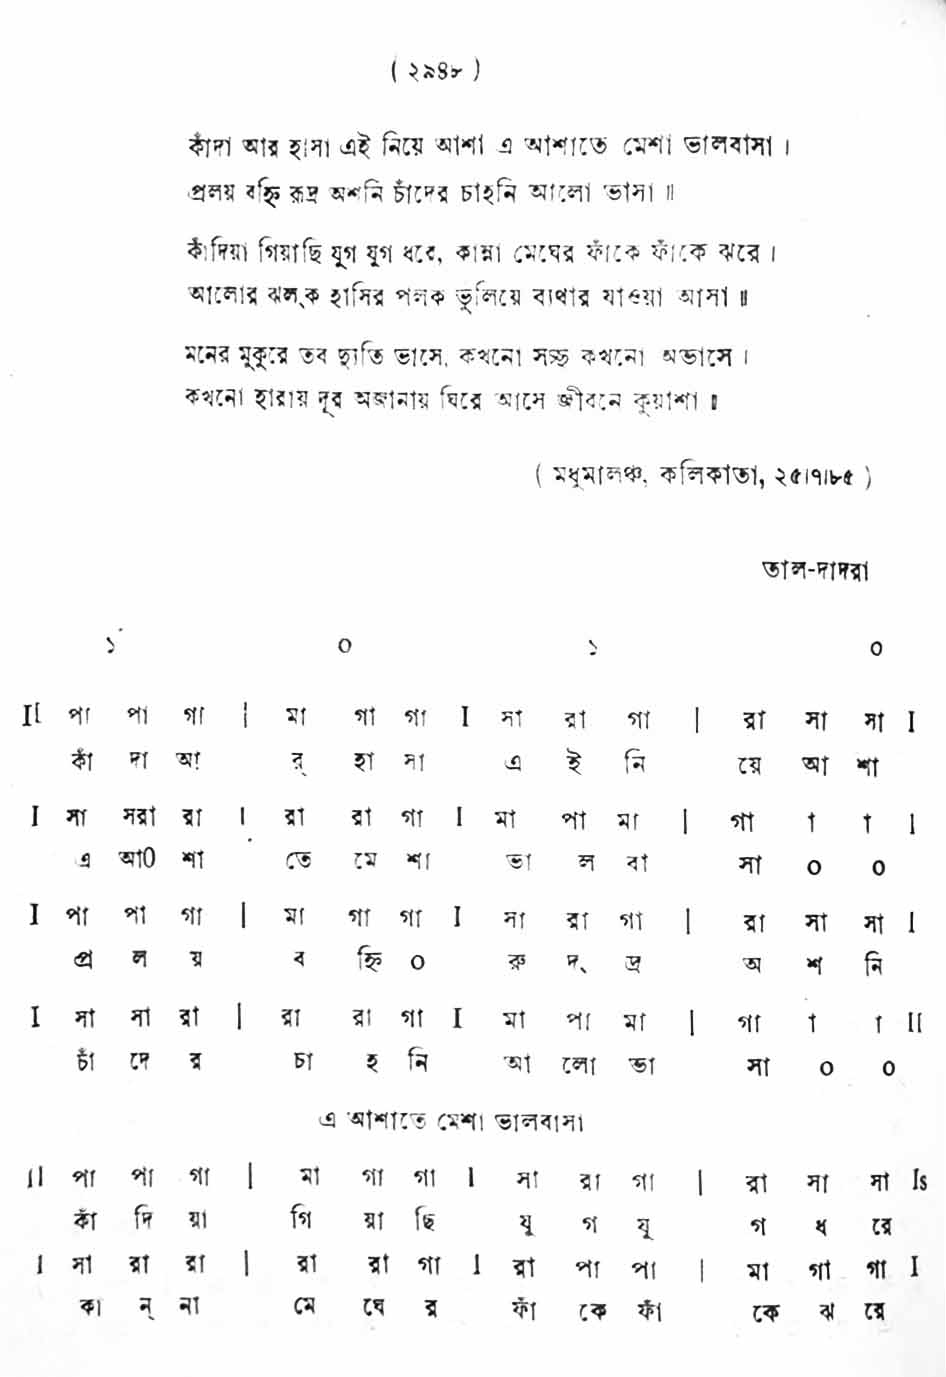 ( ২৯৪৮ )
কাঁদা আর হাসা এই নিয়ে আশা এ আশাতে মেশা ভালবাসা ।
প্রলয় বহ্নি রূদ্র অশনি চাঁদের চাহনি আলো ভাসা ॥
কাঁদিয়া গিয়াছি যুগ যুগ ধরে, কান্না মেঘের ফাঁকে ফাঁকে ঝরে ।
আলোর ঝল্ক হাসির পলক ভুলিয়ে ব্যথার যাওয়া আসা ॥
মনের মুকুরে তব দ্যুতি ভাসে, কখনো সচ্ছ কখনো অভাসে ।
কখনো হারায় দূর অজানায় ঘিরে আসে জীবনে কুয়াশা ॥
( মধুমালঞ্চ, কলিকাতা, ২৫।৭।৮৫ )
তাল-দাদরা
১ ০ ১ ০
II পা পা গা | মা গা গা I সা রা গা | রা সা সা I
কাঁ দা আ র্ হা সা এ ই নি য়ে আ শা
I সা সরা রা | রা রা গা I মা পা মা | গা া া I
এ আ০ শা তে মে শা ভা ল বা সা ০ ০
I পা পা গা | মা গা গা I সা রা গা | রা সা সা I
প্র ল য় ব হ্নি ০ রু দ্ দ্র অ শ নি
I সা সা রা | রা রা গা I মা পা মা | গা া া II
চাঁ দে র চা হ নি আ লো ভা সা ০ ০
এ আশাতে মেশা ভালবাসা
II পা পা গা | মা গা গা I সা রা গা | রা সা সা Is
কাঁ দি য়া গি য়া ছি যু গ যু গ ধ রে
I সা রা রা | রা রা গা I রা পা পা | মা গা গা I
কা ন্ না মে ঘে র ফাঁ কে ফাঁ কে ঝ রে